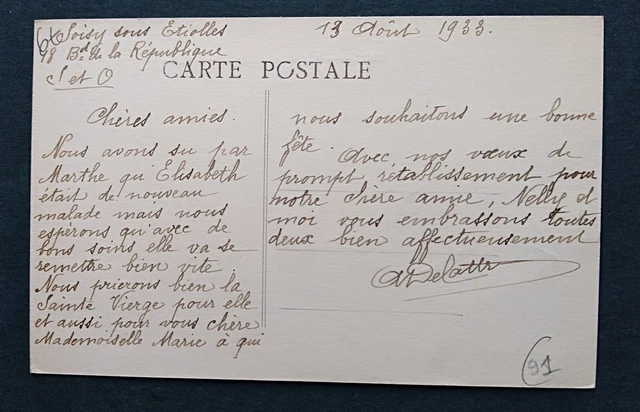 Soisy sous Etiolles
18 Bd de la République
S et O
13 Août 1933.
CARTE POSTALE
Chères amies.
Nous avons su par
Marthe qu'Elisabeth
était de nouveau
malade mais nous
espérons qu'avec de
bons soins elle va se
remettre bien vite
Nous prierons bien la
Sainte Vierge pour elle
et aussi pour vous chère
Mademoiselle Marie à qui
nous souhaitons une bonne
fête.
Avec nos vœux de
prompt rétablissement pour
notre chère amie, Nelly et
moi vous embrassons toutes
deux bien affectueusement
91